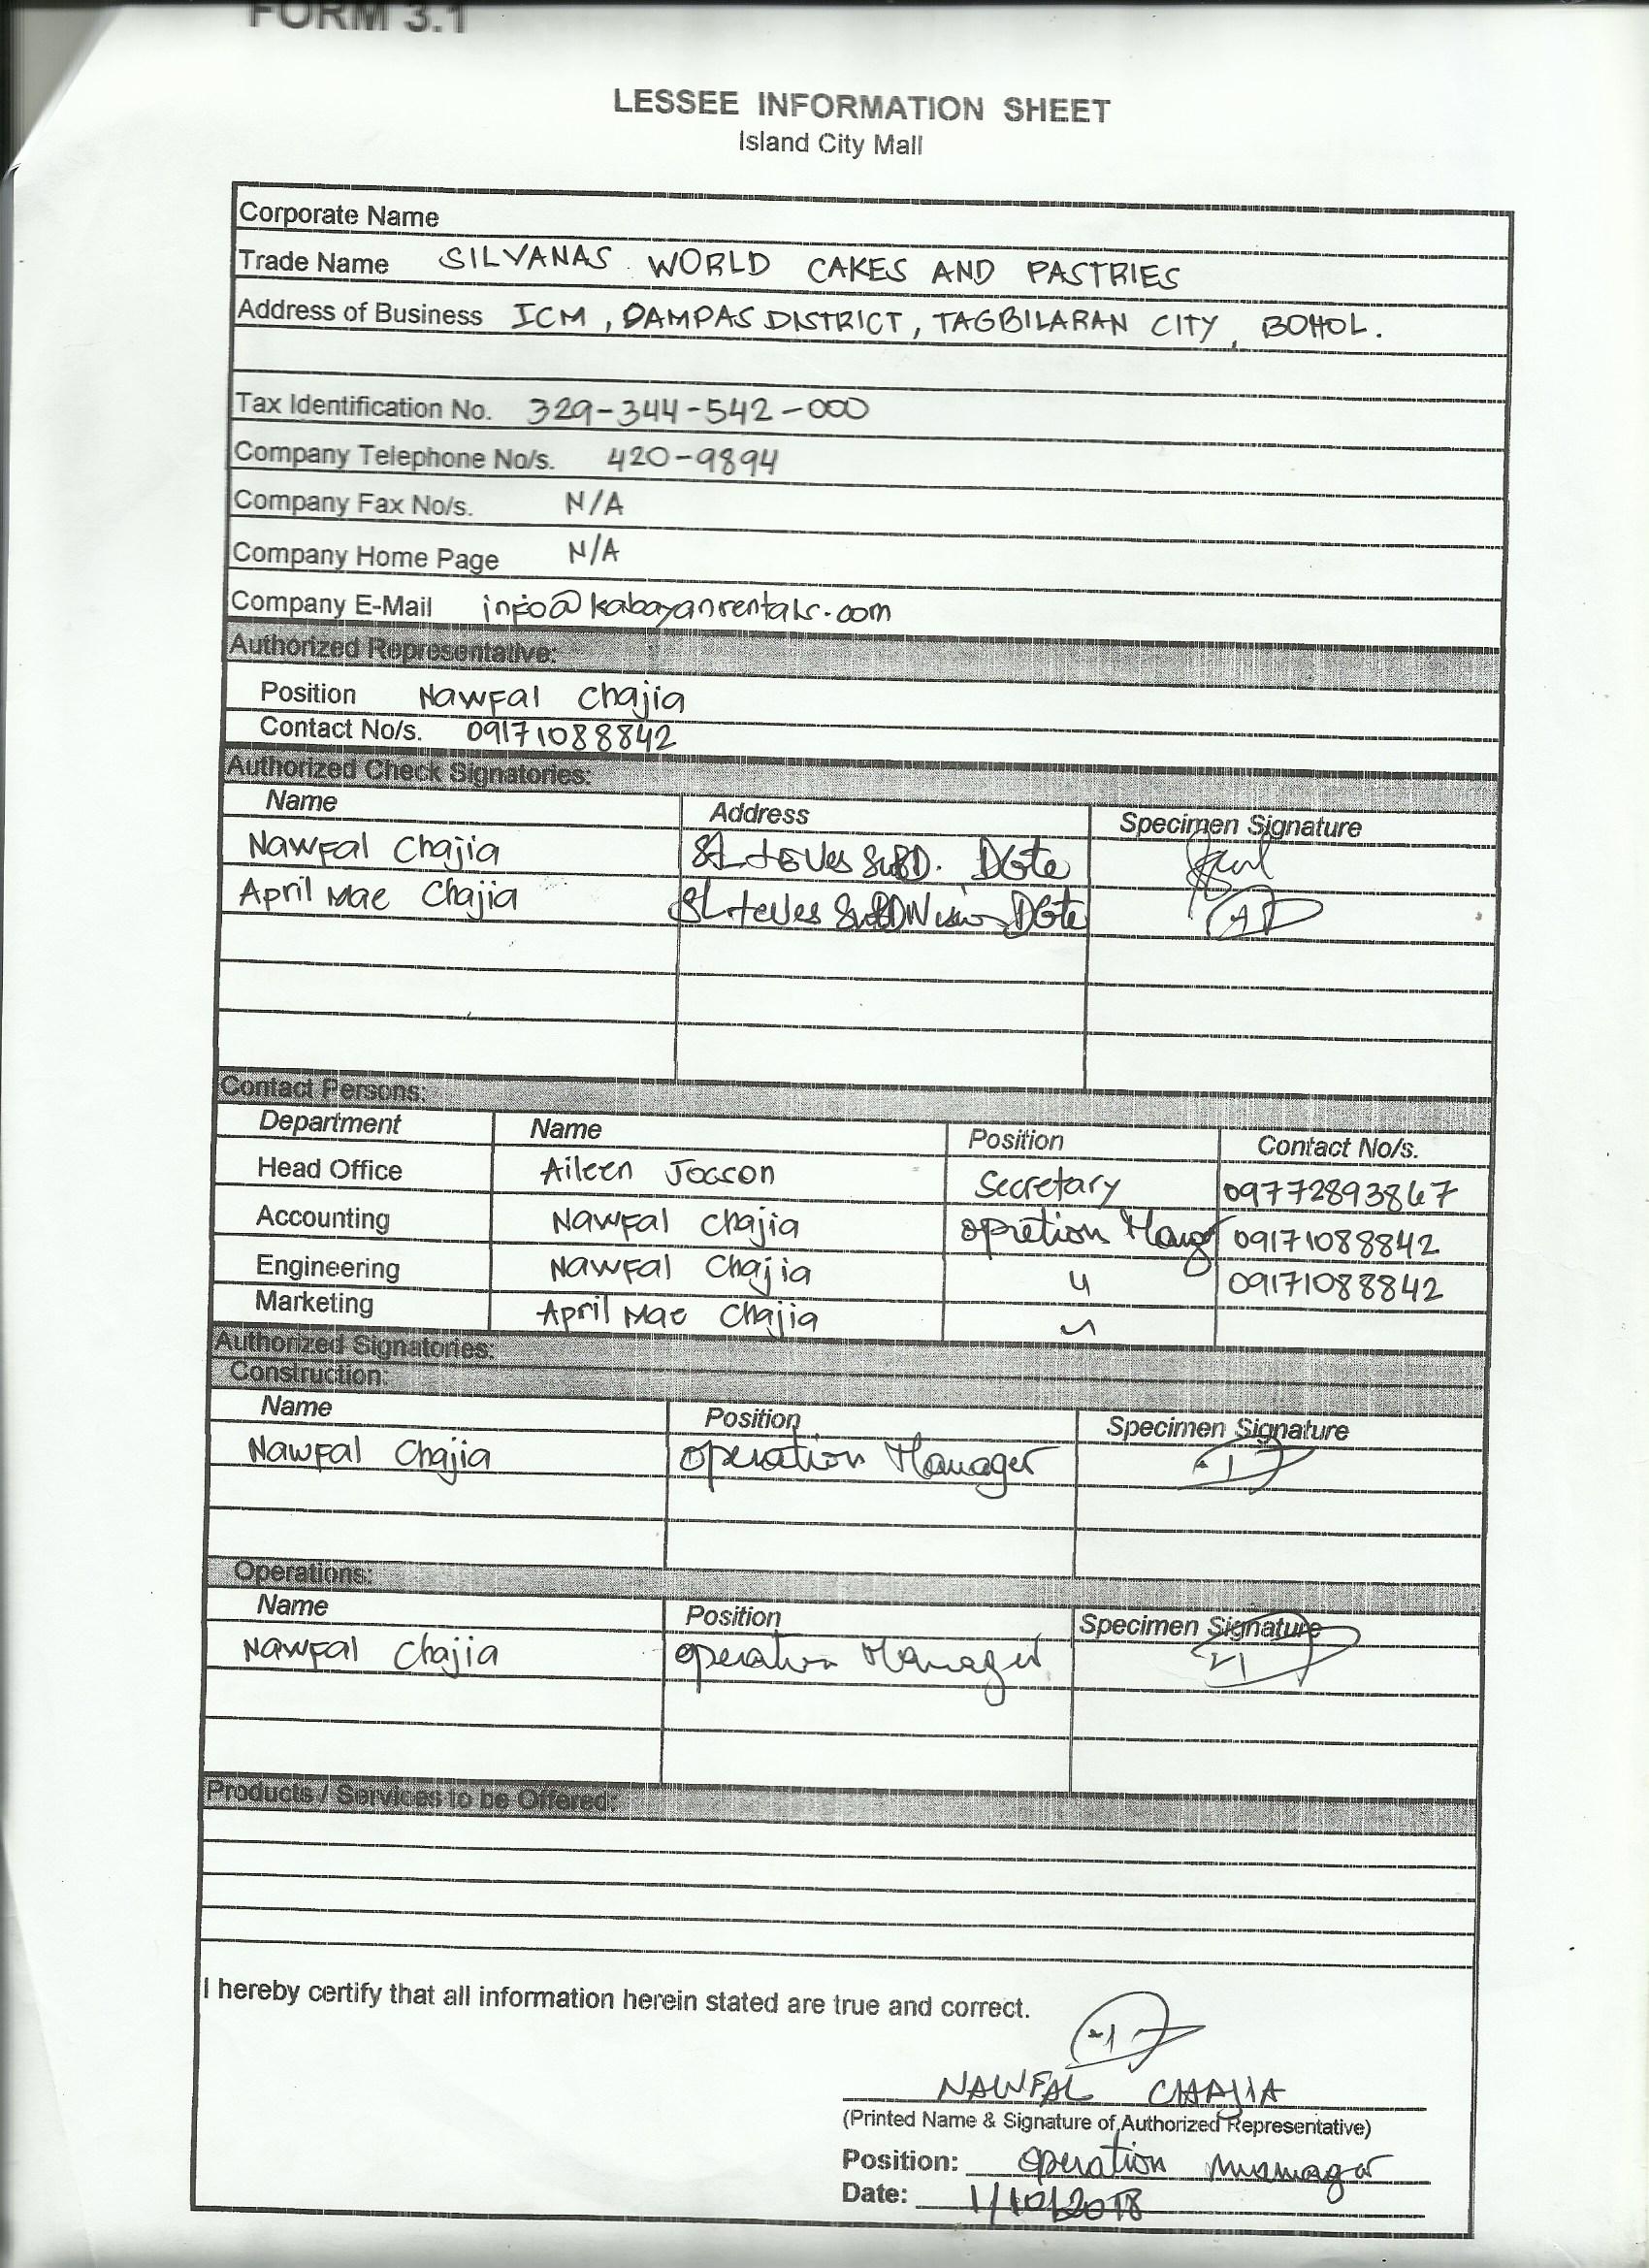 FORM 3.1
LESSEE INFORMATION SHEET
Island City Mall
Corporate Name
Trade Name SILVANAS WORLD CAKES AND PASTRIES
Address of Business ICM, DAMPAS DISTRICT, TAGBILARAN CITY, BOHOL.
Tax Identification No. 329-344-542-000
Company Telephone No/s. 420-9894
Company Fax No/s. N/A
Company Home Page N/A
Company E-Mail info@kabayanrentals.com
Authorized Representative:
Position Nawfal Chajia
Contact No/s. 09171088842
Authorized Check Signatories:
Name Address Specimen Signature
Nawfal Chajia Teves SUBD. DGte
April Mae Chajia Teves DGte
Contact Persons:
Department Name Position Contact No/s.
Head Office Aileen Jocson Secretary 09772893867
Accounting Nawfal Chajia opretion Mang 09171088842
Engineering Nawfal Chajia 09171088842
Marketing April Mae Chajia
Authorized Signatories:
Construction:
Name Position Specimen Signature
Nawfal Chajia operation Manager
Operations:
Name Position Specimen Signature
Nawfal Chajia operation Manager
Products / Services to be Offered:
I hereby certify that all information herein stated are true and correct.
NAWFAL CHAJIA
(Printed Name & Signature of Authorized Representative)
Position: operation
Date: 1/10/2018